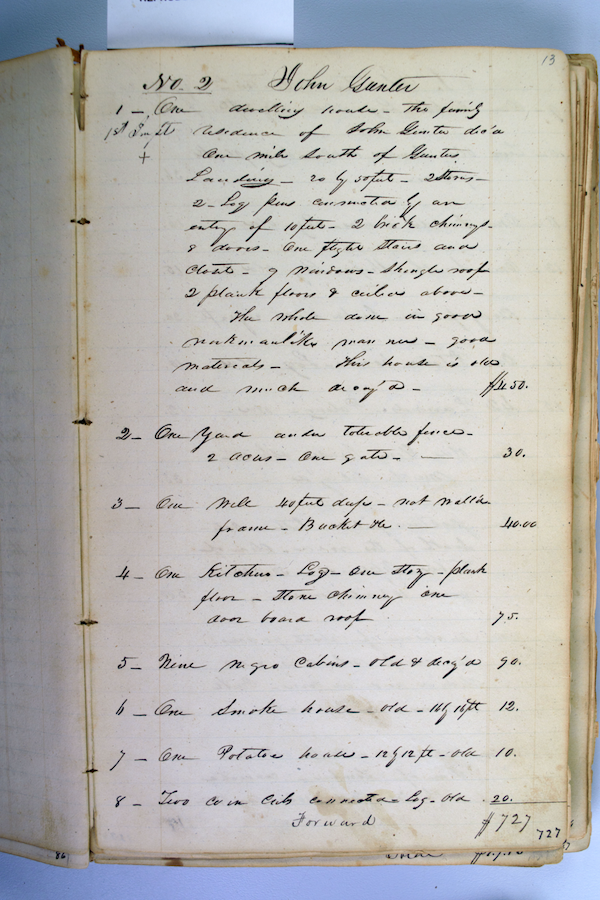 13
No. 2 John Gunter
1 — One dwelling house — the family
1st Impt residence of John Gunter dec'd
+ One mile South of Gunters
Landing — 20 by 50 feet — 2 Stories —
2 - Log pens connected by an
entry of 10 feet — 2 brick chimneys —
8 doors — One flight Stairs and
closet — 9 windows — Shingle roof
2 plank floors & ceiled above —
The whole done in good
workmanlike manner — good
materials — This house is old
and much decay'd — $450.
2 — One Yard under tolerable fence —
2 acres — One gate — — 30.
3 — One Well 40 feet deep — not wall'd
frame — Bucket &c. — 40.00
4 — One Kitchen — Log — One Story — plank
floor — Stone chimney one
door board roof 75.
5 — Nine negro Cabins — Old & decay'd 90.
6 — One Smoke house — old — 16 by 16 ft 12.
7 — One Potatoe house — 12 by 12 ft — old 10.
8 — Two corn cribs connected — Log — Old 20.
Forward $727
727
86